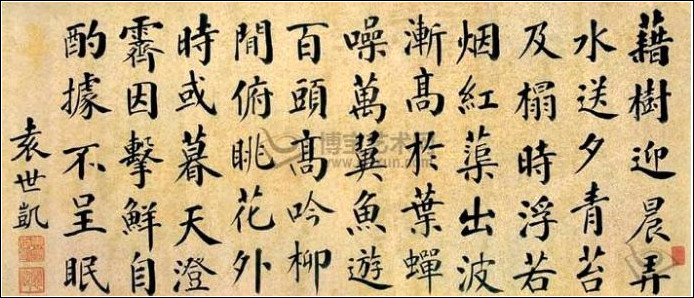 藉樹迎晨弄
水送夕青苔
及榻時浮若
烟紅蕖出波
漸髙於葉蟬
噪萬翼魚遊
百頭髙吟柳
間俯眺花外
時或暮天澄
霽因擊鮮自
酌據不呈眠
袁世凱
博宝艺术网